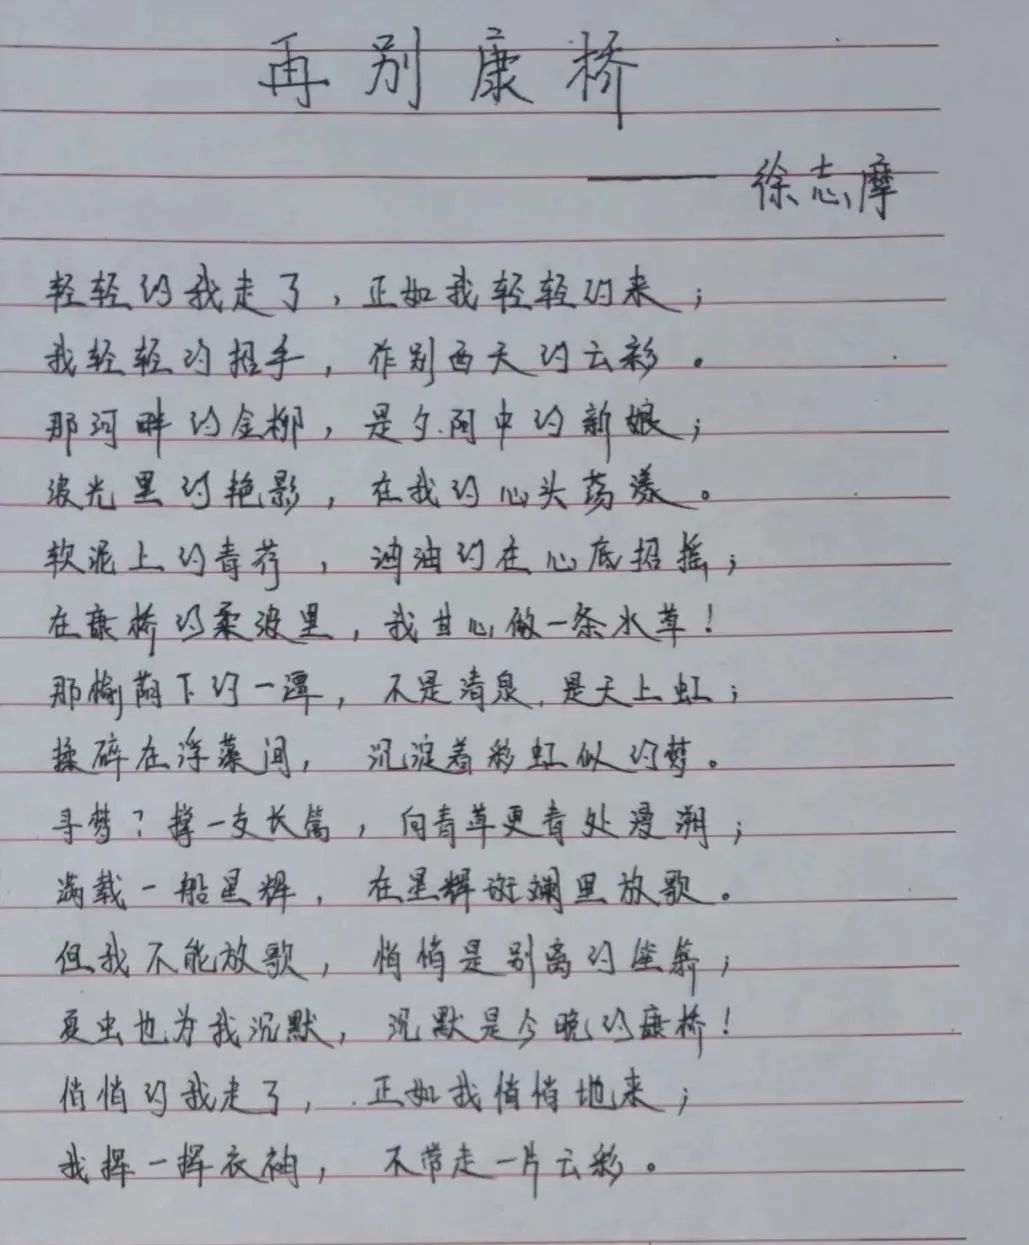 再别康桥
——徐志摩
轻轻的我走了，正如我轻轻的来；
我轻轻的招手，作别西天的云彩。
那河畔的金柳，是夕阳中的新娘；
波光里的艳影，在我的心头荡漾。
软泥上的青荇，油油的在心底招摇；
在康桥的柔波里，我甘心做一条水草！
那榆荫下的一潭，不是清泉，是天上虹；
揉碎在浮藻间，沉淀着彩虹似的梦。
寻梦？撑一支长篙，向青草更青处漫溯；
满载一船星辉，在星辉斑斓里放歌。
但我不能放歌，悄悄是别离的笙箫；
夏虫也为我沉默，沉默是今晚的康桥！
悄悄的我走了，正如我悄悄地来；
我挥一挥衣袖，不带走一片云彩。